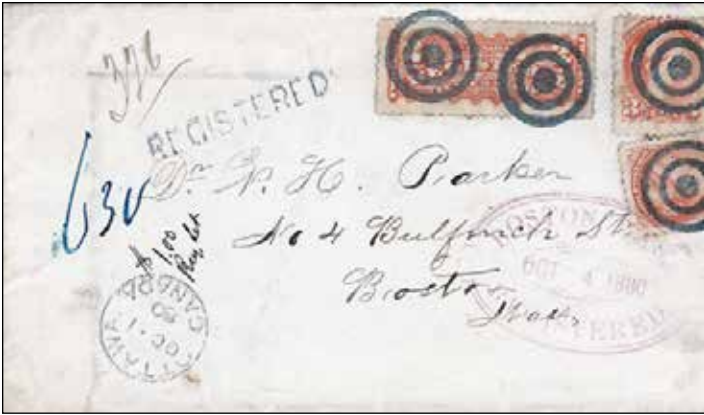 376
REGISTERED
630
Dr. W. H. Parker
No 4 Bulfinch St
Boston
Mass
$1.00
Reg Let
OTTAWA CANADA
OC 1
80
BOSTON
OCT 4 1880
REGISTERED